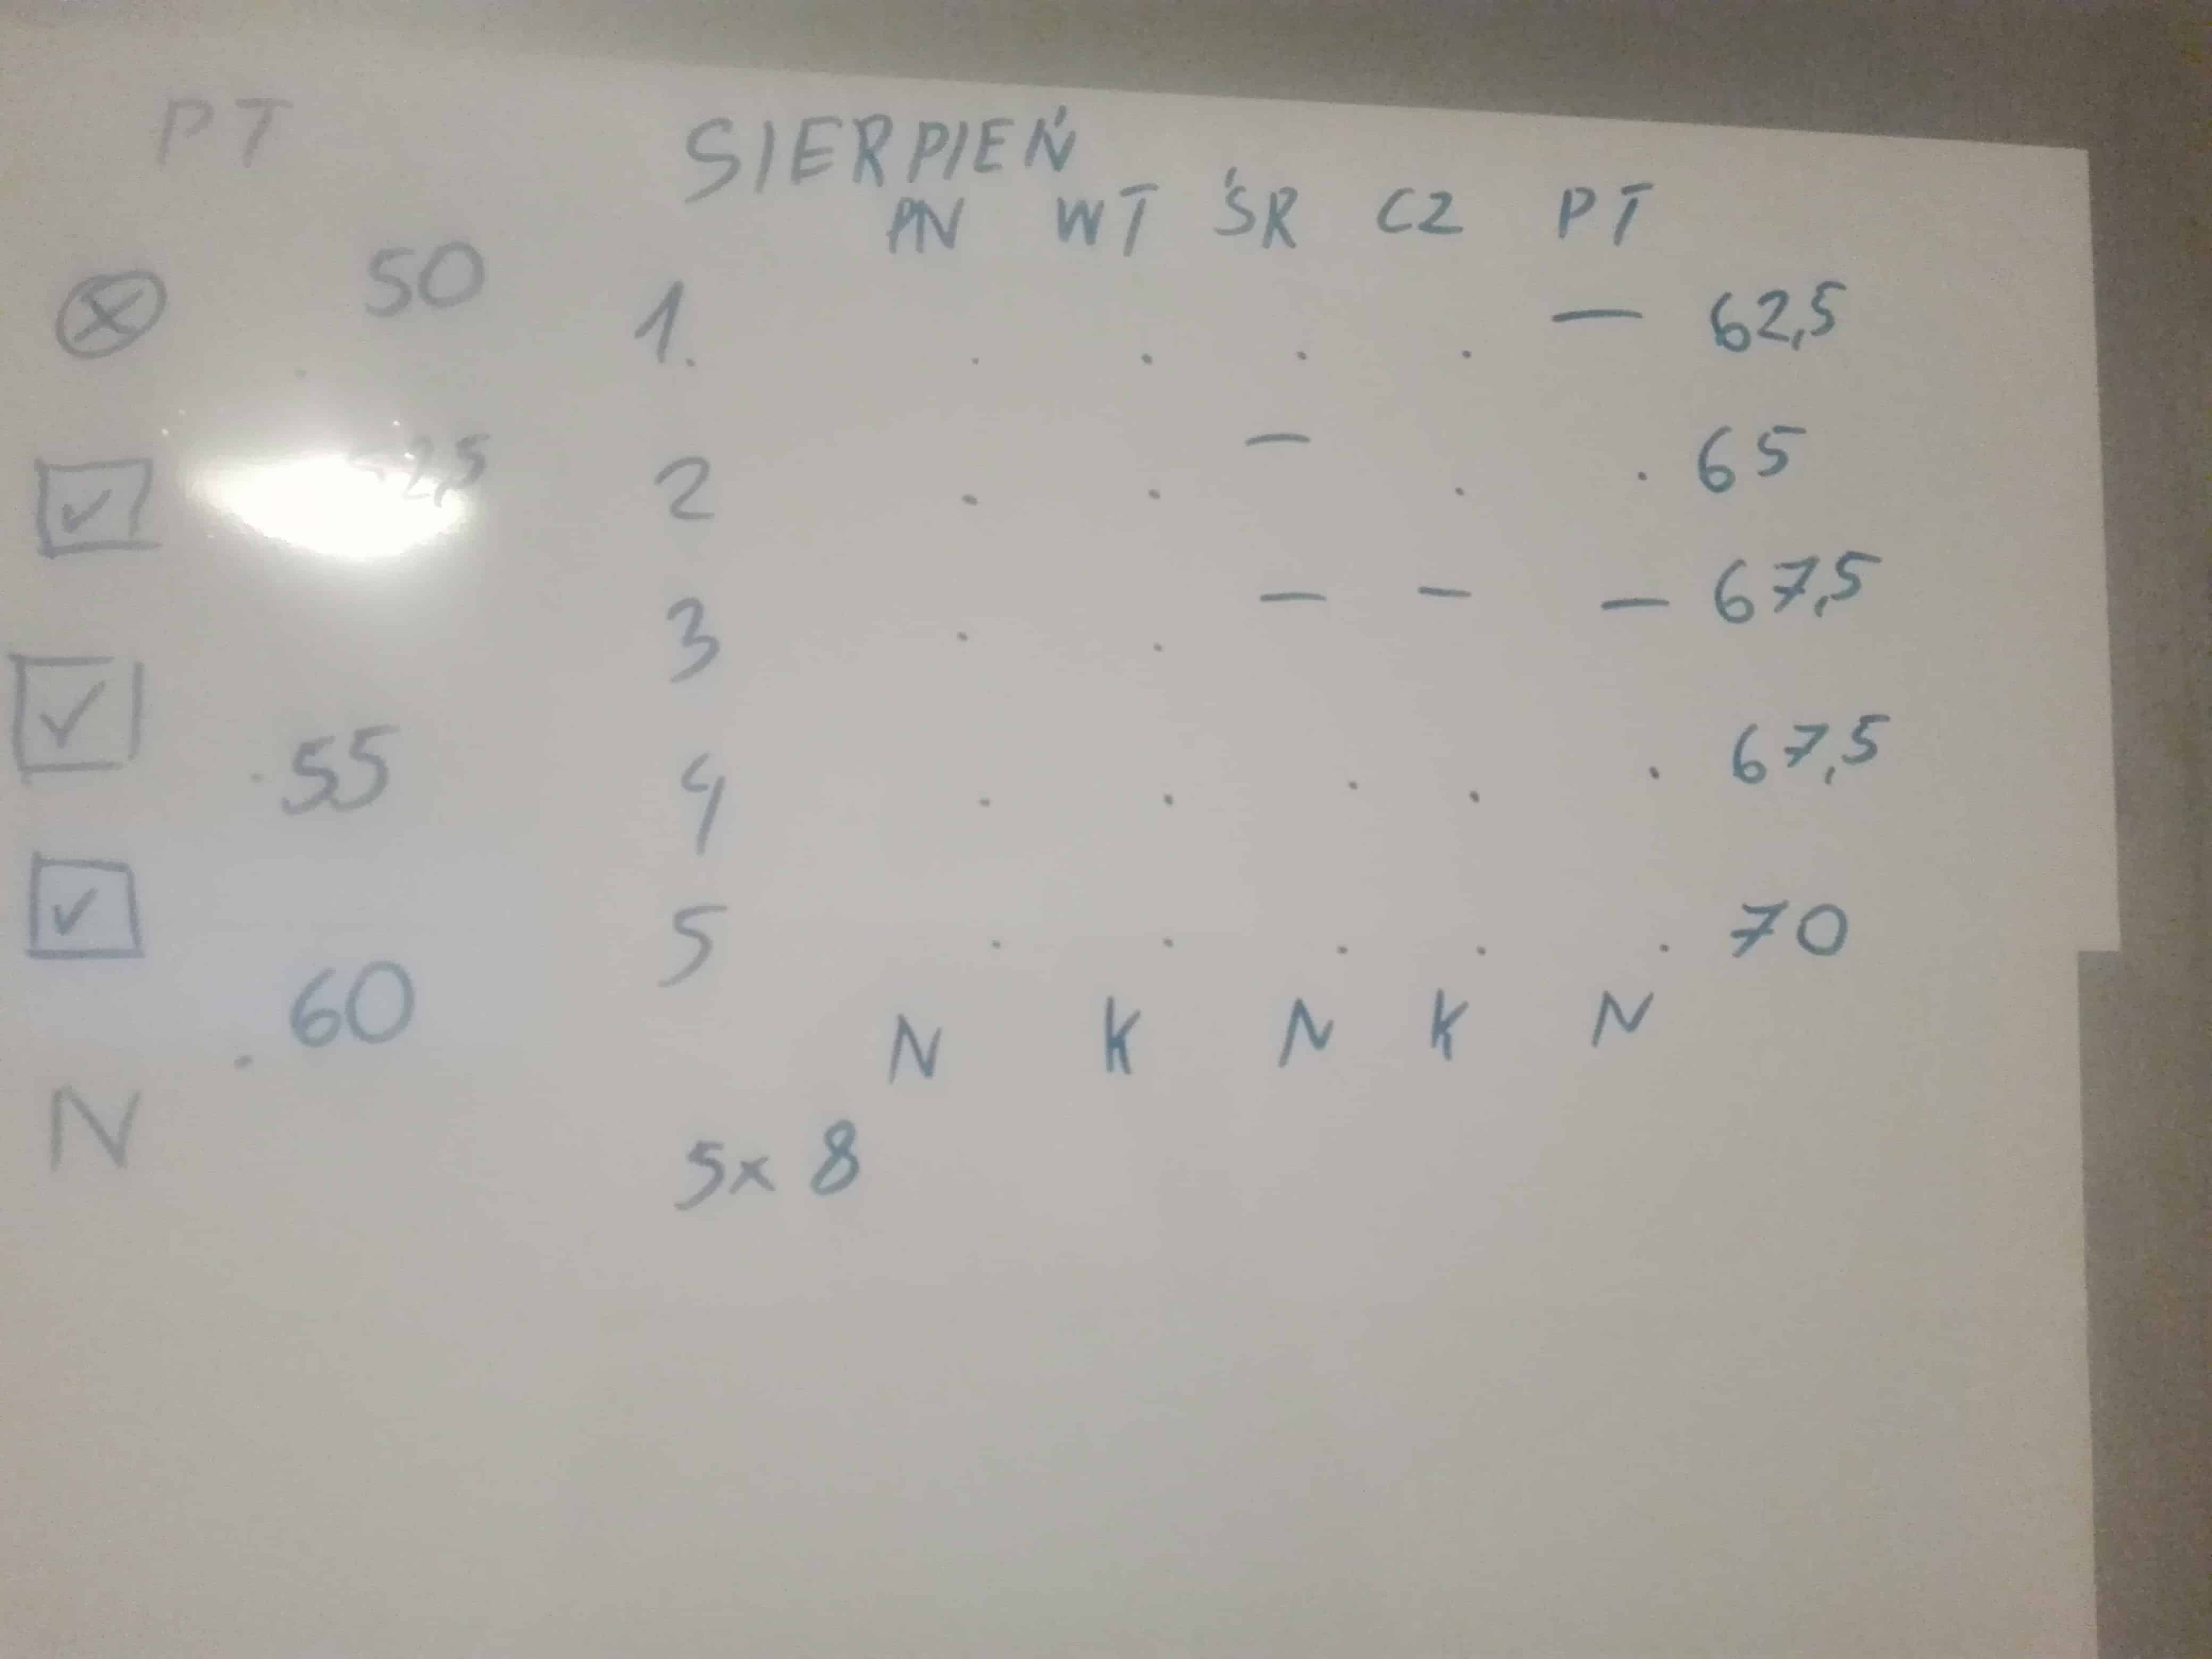 PT
SIERPIEŃ
PN WT ŚR CZ PT
50
1. . . . . — 62,5
2,5
2 . . — . . 65
3 . . — — — 67,5
55
4 . . . . . 67,5
5 . . . . . 70
60
N K N K N
N
5x 8